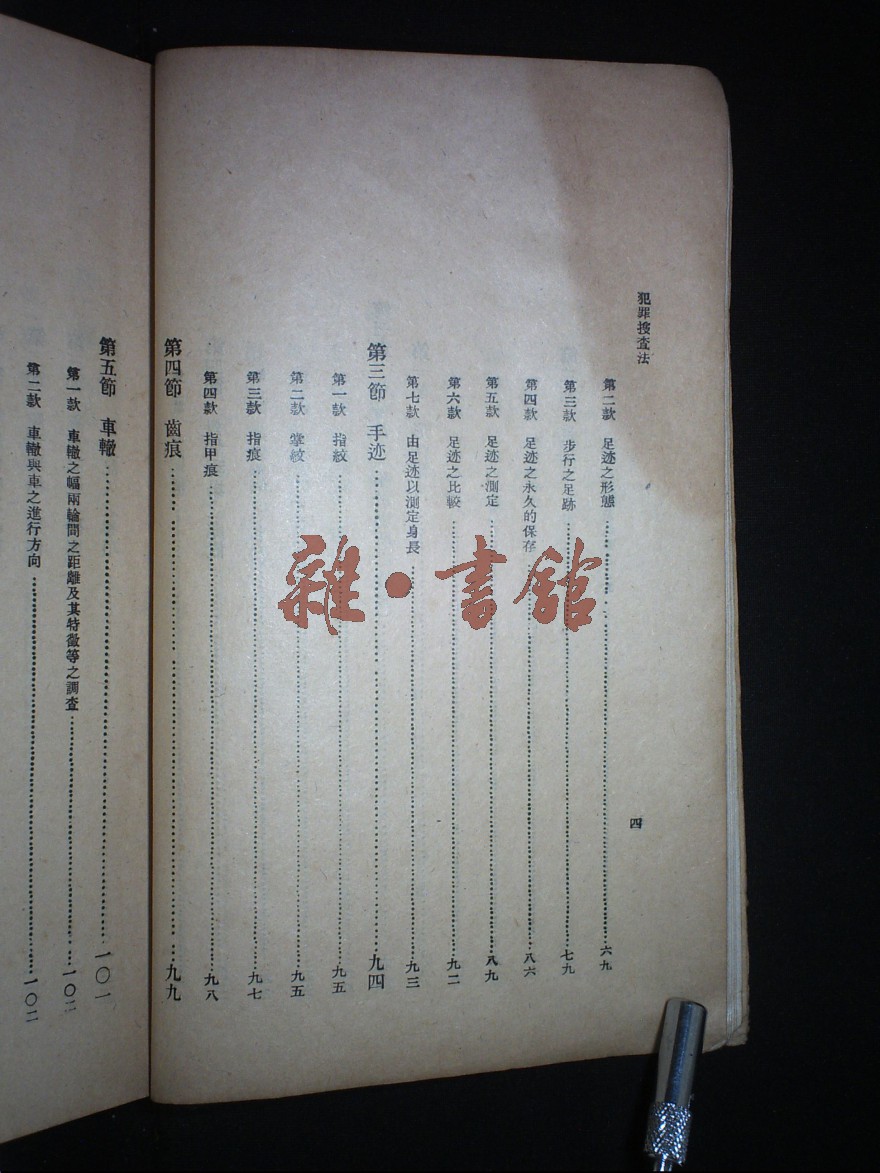 犯罪搜查法
四
第二款 足迹之形態 六九
第三款 步行之足跡 七九
第四款 足迹之永久的保存 八六
第五款 足迹之測定 八九
第六款 足迹之比較 九二
第七款 由足迹以測定身長 九三
第三節 手迹 九四
第一款 指紋 九五
第二款 掌紋 九五
第三款 指痕 九七
第四款 指甲痕 九八
第四節 齒痕 九九
第五節 車轍 一〇一
第一款 車轍之幅兩輪間之距離及其特徵等之調查 一〇二
第二款 車轍與車之進行方向 一〇二
雜·書館